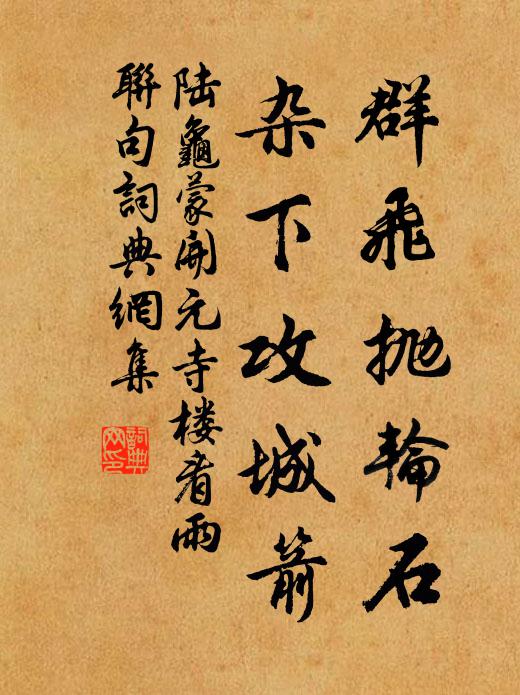 群飛抛輪石
杂下攻城箭
陆龜蒙開元寺楼看雨
聯句詞典網集
詞典
网印